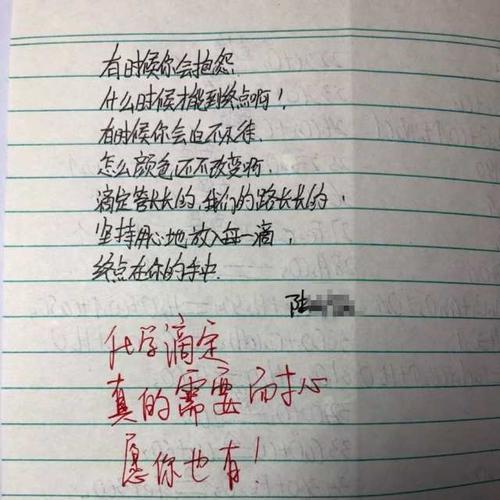 有时候你会抱怨
什么时候才能到终点啊！
有时候你会迫不及待
怎么颜色还不改变啊
滴定管长长的，我们的路长长的，
坚持用心地放入每一滴，
终点在你的手中
陆
化学滴定
真的需要耐心
愿你也有！